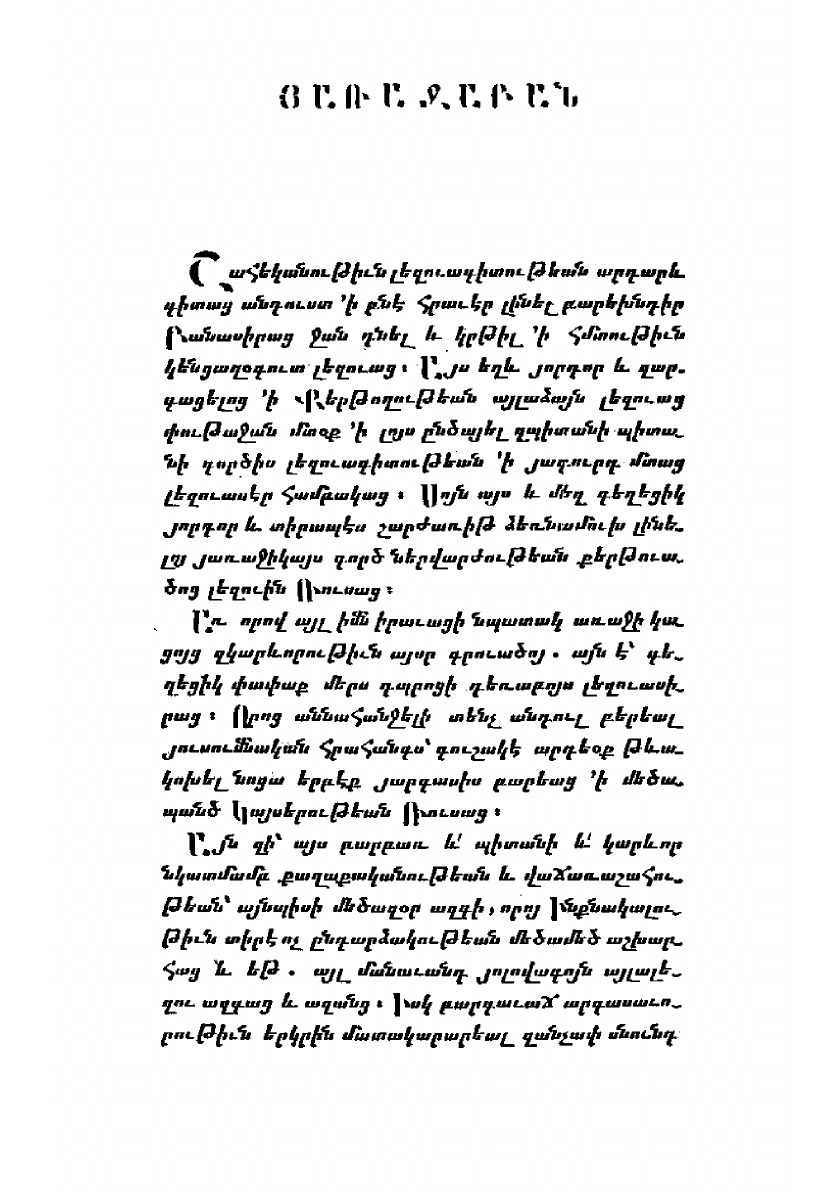 ՅԱՌԱՋԱԲԱՆ
Շահեկանութիւն լեզուագիտութեան արդարև
գիտաց անդուստ ՚ի բնէ հրաւէր լինել բարեխնդիր
Բանասիրաց ջան դնել և կրթիլ ՚ի հմտութիւն
կենցաղօգուտ լեզուաց։ Այս եղև յորդոր և զար-
գացելոց ՚ի Քերթողութեան այլաձայն լեզուաց
փութաջան մտօք ՚ի լոյս ընծայել զպիտանի պիտա-
նի գործիս լեզուագիտութեան ՚ի յագուրդ մտաց
լեզուասէր համբակաց։ Սոյն այս և մեղ գեղեցիկ
յորդոր և տիրապէս շարժառիթ ձեռնամուխ լինե-
լոյ յառաջիկայս գործ ներվարժութեան քերթուա-
ծոց լեզուին Ռուսաց։
Առ որով այլ իմն իրաւացի նպատակ առաջի կա-
ցոյց զկարևորութիւն այսր գրուածոյ. այն է՝ գե-
ղեցիկ փափաք մերս դպրոցի դեռաբոյս լեզուասի-
րաց։ Որոց աննահանջելի տենչ անդուլ բերեալ
յուսումնական հրահանգս՝ գուշակէ արդեօք թևա-
կոխել նոցա երբէք յարգասիս բարեաց ՚ի մեծա-
պանծ Կայսերութեան Ռուսաց։
Այն զի՝ այս բարբառ և՛ պիտանի և՛ կարևոր
նկատմամբ քաղաքականութեան և վաճառաշահու-
թեան՝ այնպիսի մեծազօր ազգի, որոյ Ինքնակալու-
թիւն տիրէ ոչ ընդարձակութեան մեծամեծ աշխար-
հաց ևեթ. այլ մանաւանդ յոլովագոյն այլալե-
զու ազգաց և ազանց։ Իսկ բարգաւաճ արգասաւո-
րութիւն երկրին մատակարարեալ զանչափ սնունդ